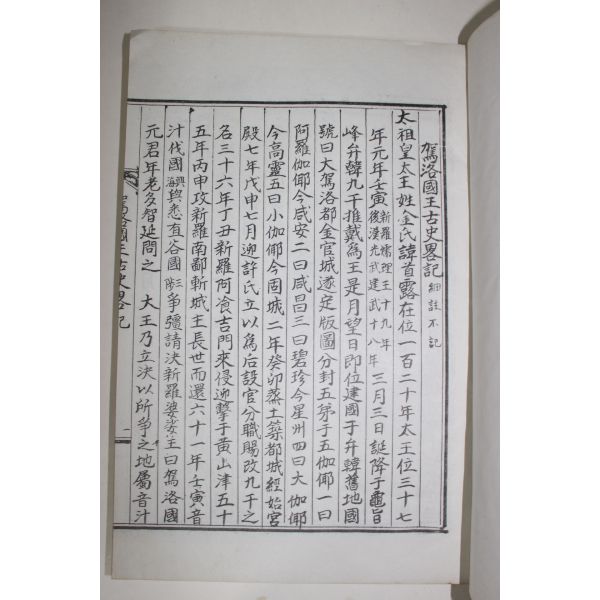 駕洛國王古史畧記 細註不記
太祖皇太王姓金氏諱首露在位一百二十年太王位三十七
年元年壬寅 新羅儒理王十九年 後漢光武建武十八年 三月三日誕降于龜旨
峰弁韓九干推戴為王是月望日即位建國于弁韓舊地國
號曰大駕洛都金官城遂定版圖分封五弟于五伽倻一曰
阿羅伽倻今咸安二曰咸昌三曰碧珍今星州四曰大伽倻
今高靈五曰小伽倻今固城二年癸卯蒸土築都城經始宮
殿七年戊申七月迎許氏立以為后設官分職賜改九干之
名三十六年丁丑新羅阿飡吉門來侵迎擊于黃山津五十
五年丙申攻新羅南鄙斬城主長世而還六十一年壬寅音
汁伐國 興與悉直谷國 爭彊請決新羅婆娑王曰駕洛國
元君年老多智延問之 大王乃立決以所爭之地屬音汁
駕洛國王古史畧記
一